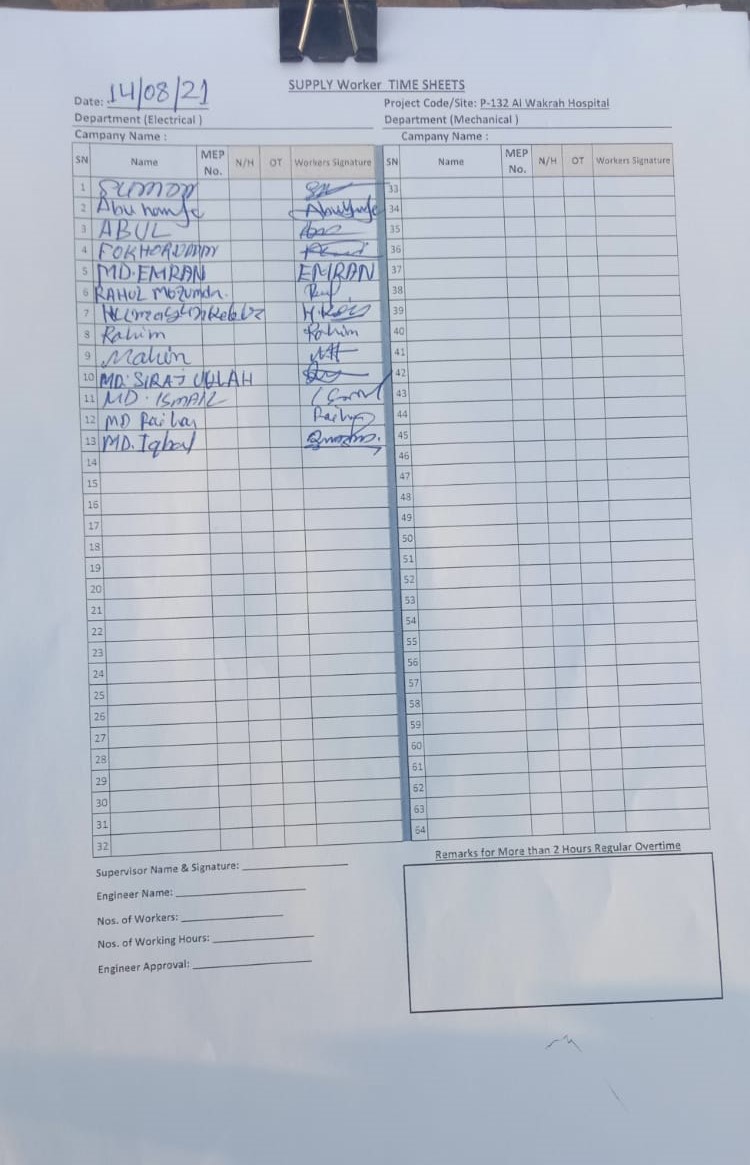 SUPPLY Worker TIME SHEETS
Date: 14/08/21
Project Code/Site: P-132 Al Wakrah Hospital
Department (Electrical )
Department (Mechanical )
Campany Name :
Campany Name :
SN Name MEP No. N/H OT Workers Signature SN Name MEP No. N/H OT Workers Signature
1 Sumon 33
2 Abu 34
3 ABUL 35
4 36
5 MD.EMRAN EMRAN 37
6 RAHUL Mozumdr. 38
7 39
8 Rahim Rahim 40
9 Mahin 41
10 MD. SIRAJ ULLAH 42
11 MD. ISMAIL 43
12 MD Raihan 44
13 MD. Iqbal 45
14 46
15 47
16 48
17 49
18 50
19 51
20 52
21 53
22 54
23 55
24 56
25 57
26 58
27 59
28 60
29 61
30 62
31 63
32 64
Supervisor Name & Signature:
Remarks for More than 2 Hours Regular Overtime
Engineer Name:
Nos. of Workers:
Nos. of Working Hours:
Engineer Approval: